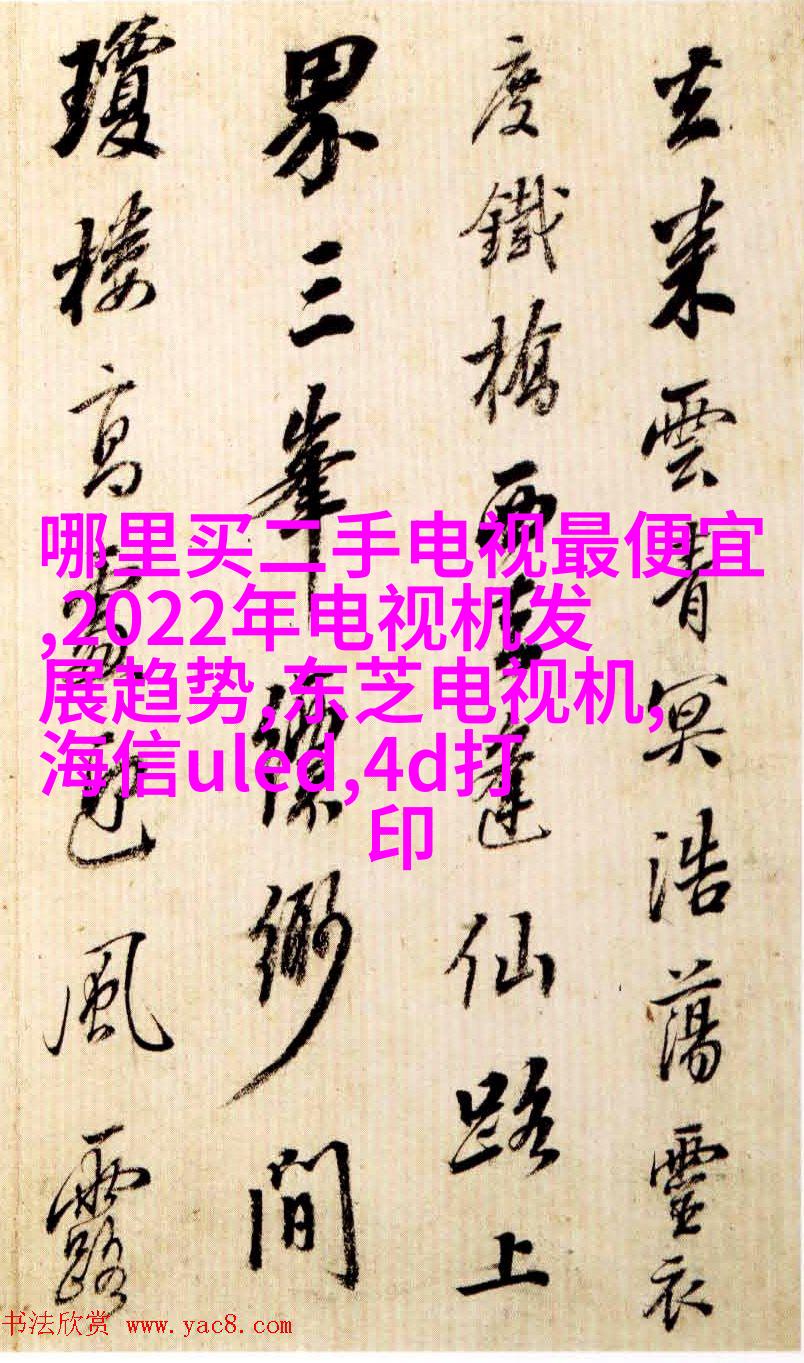 去来雲青冥浩蕩靈衣
度鐵橋西蓬仙路上
界三峯縹緲間
瓊樓高風露
哪里买二手电视最便宜
,2022年电视机发
展趋势,东芝电视机,
海信uled,4d打
印
书法欣赏 www.yac8.com